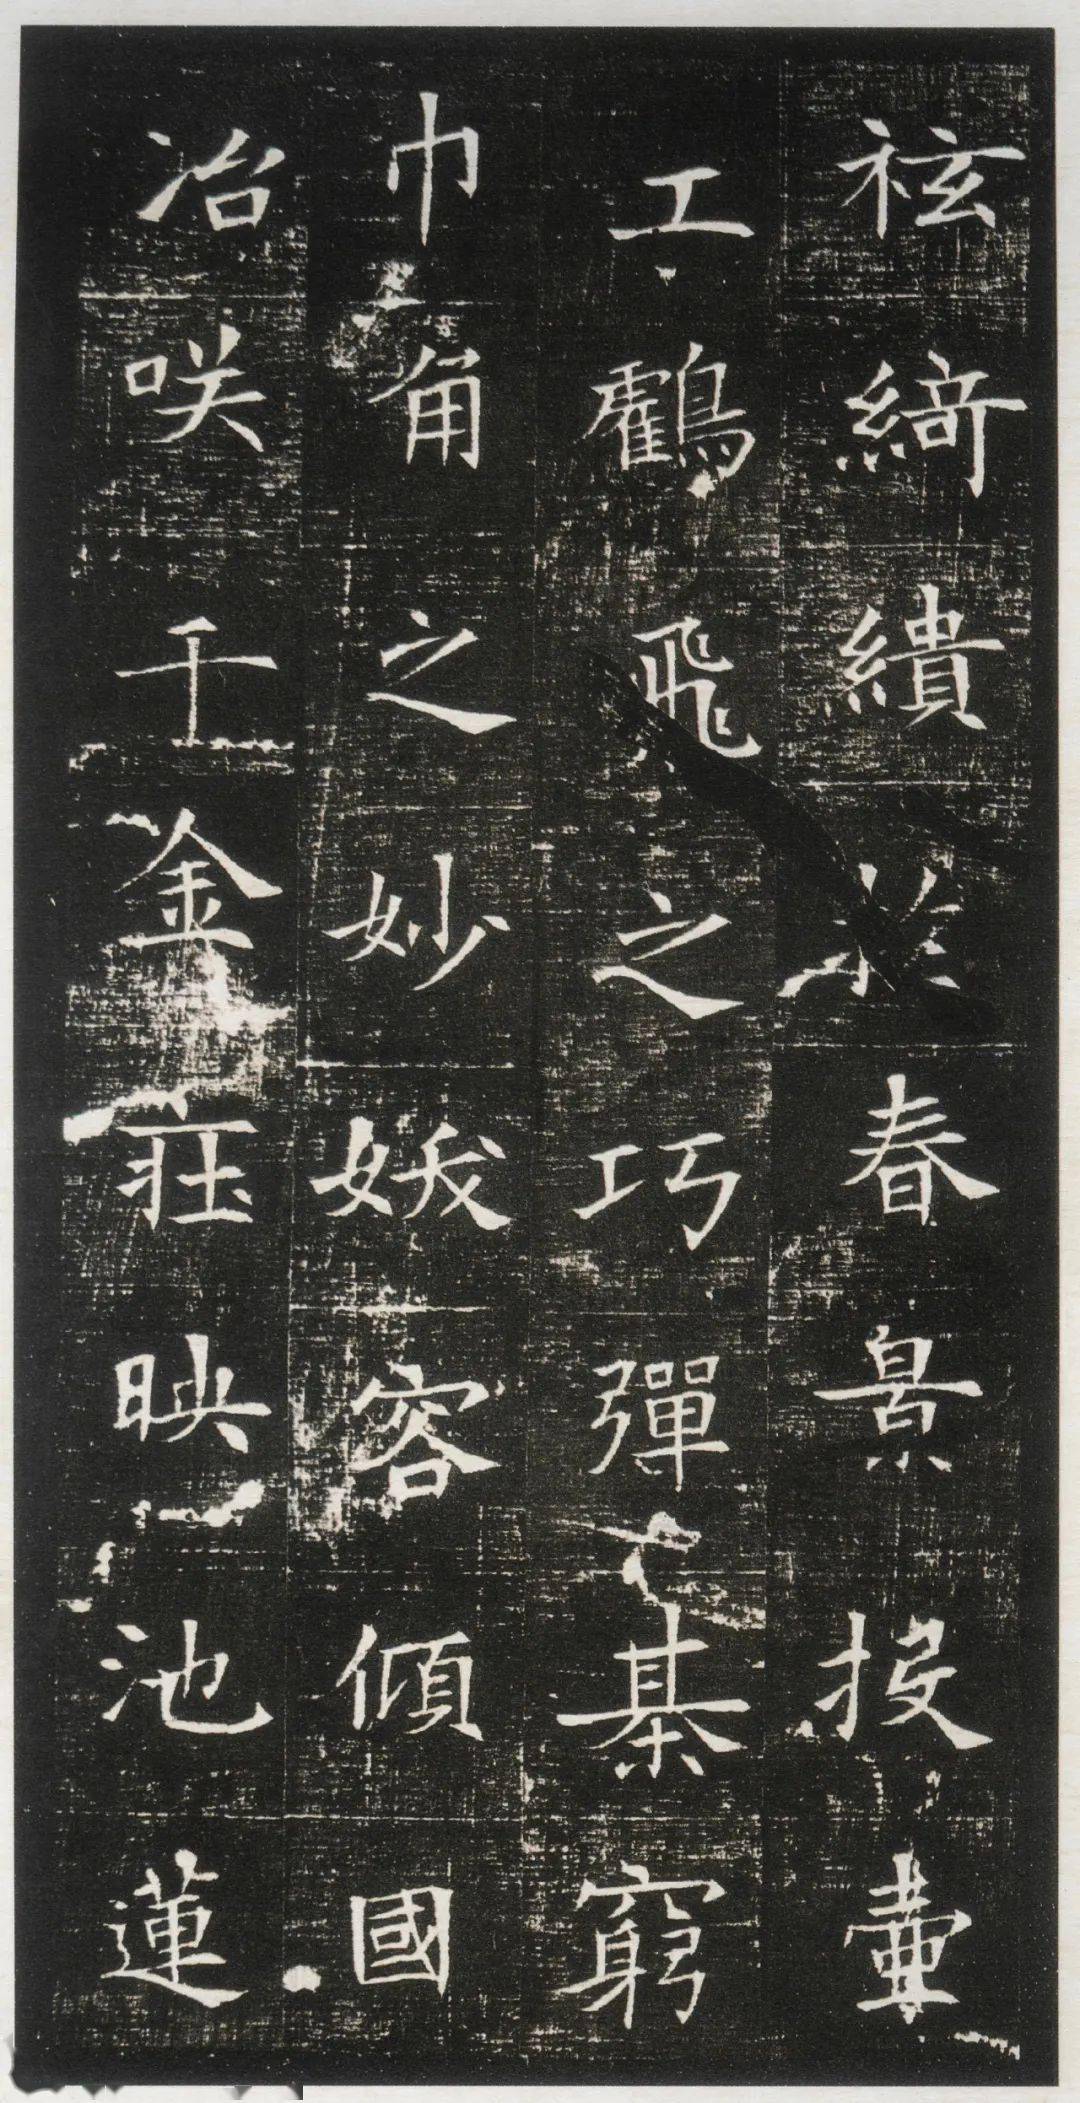 袨綺繢於春景投壺
工鶴飛之巧彈棊窮
巾角之妙妖容傾國
冶咲千金莊映池蓮